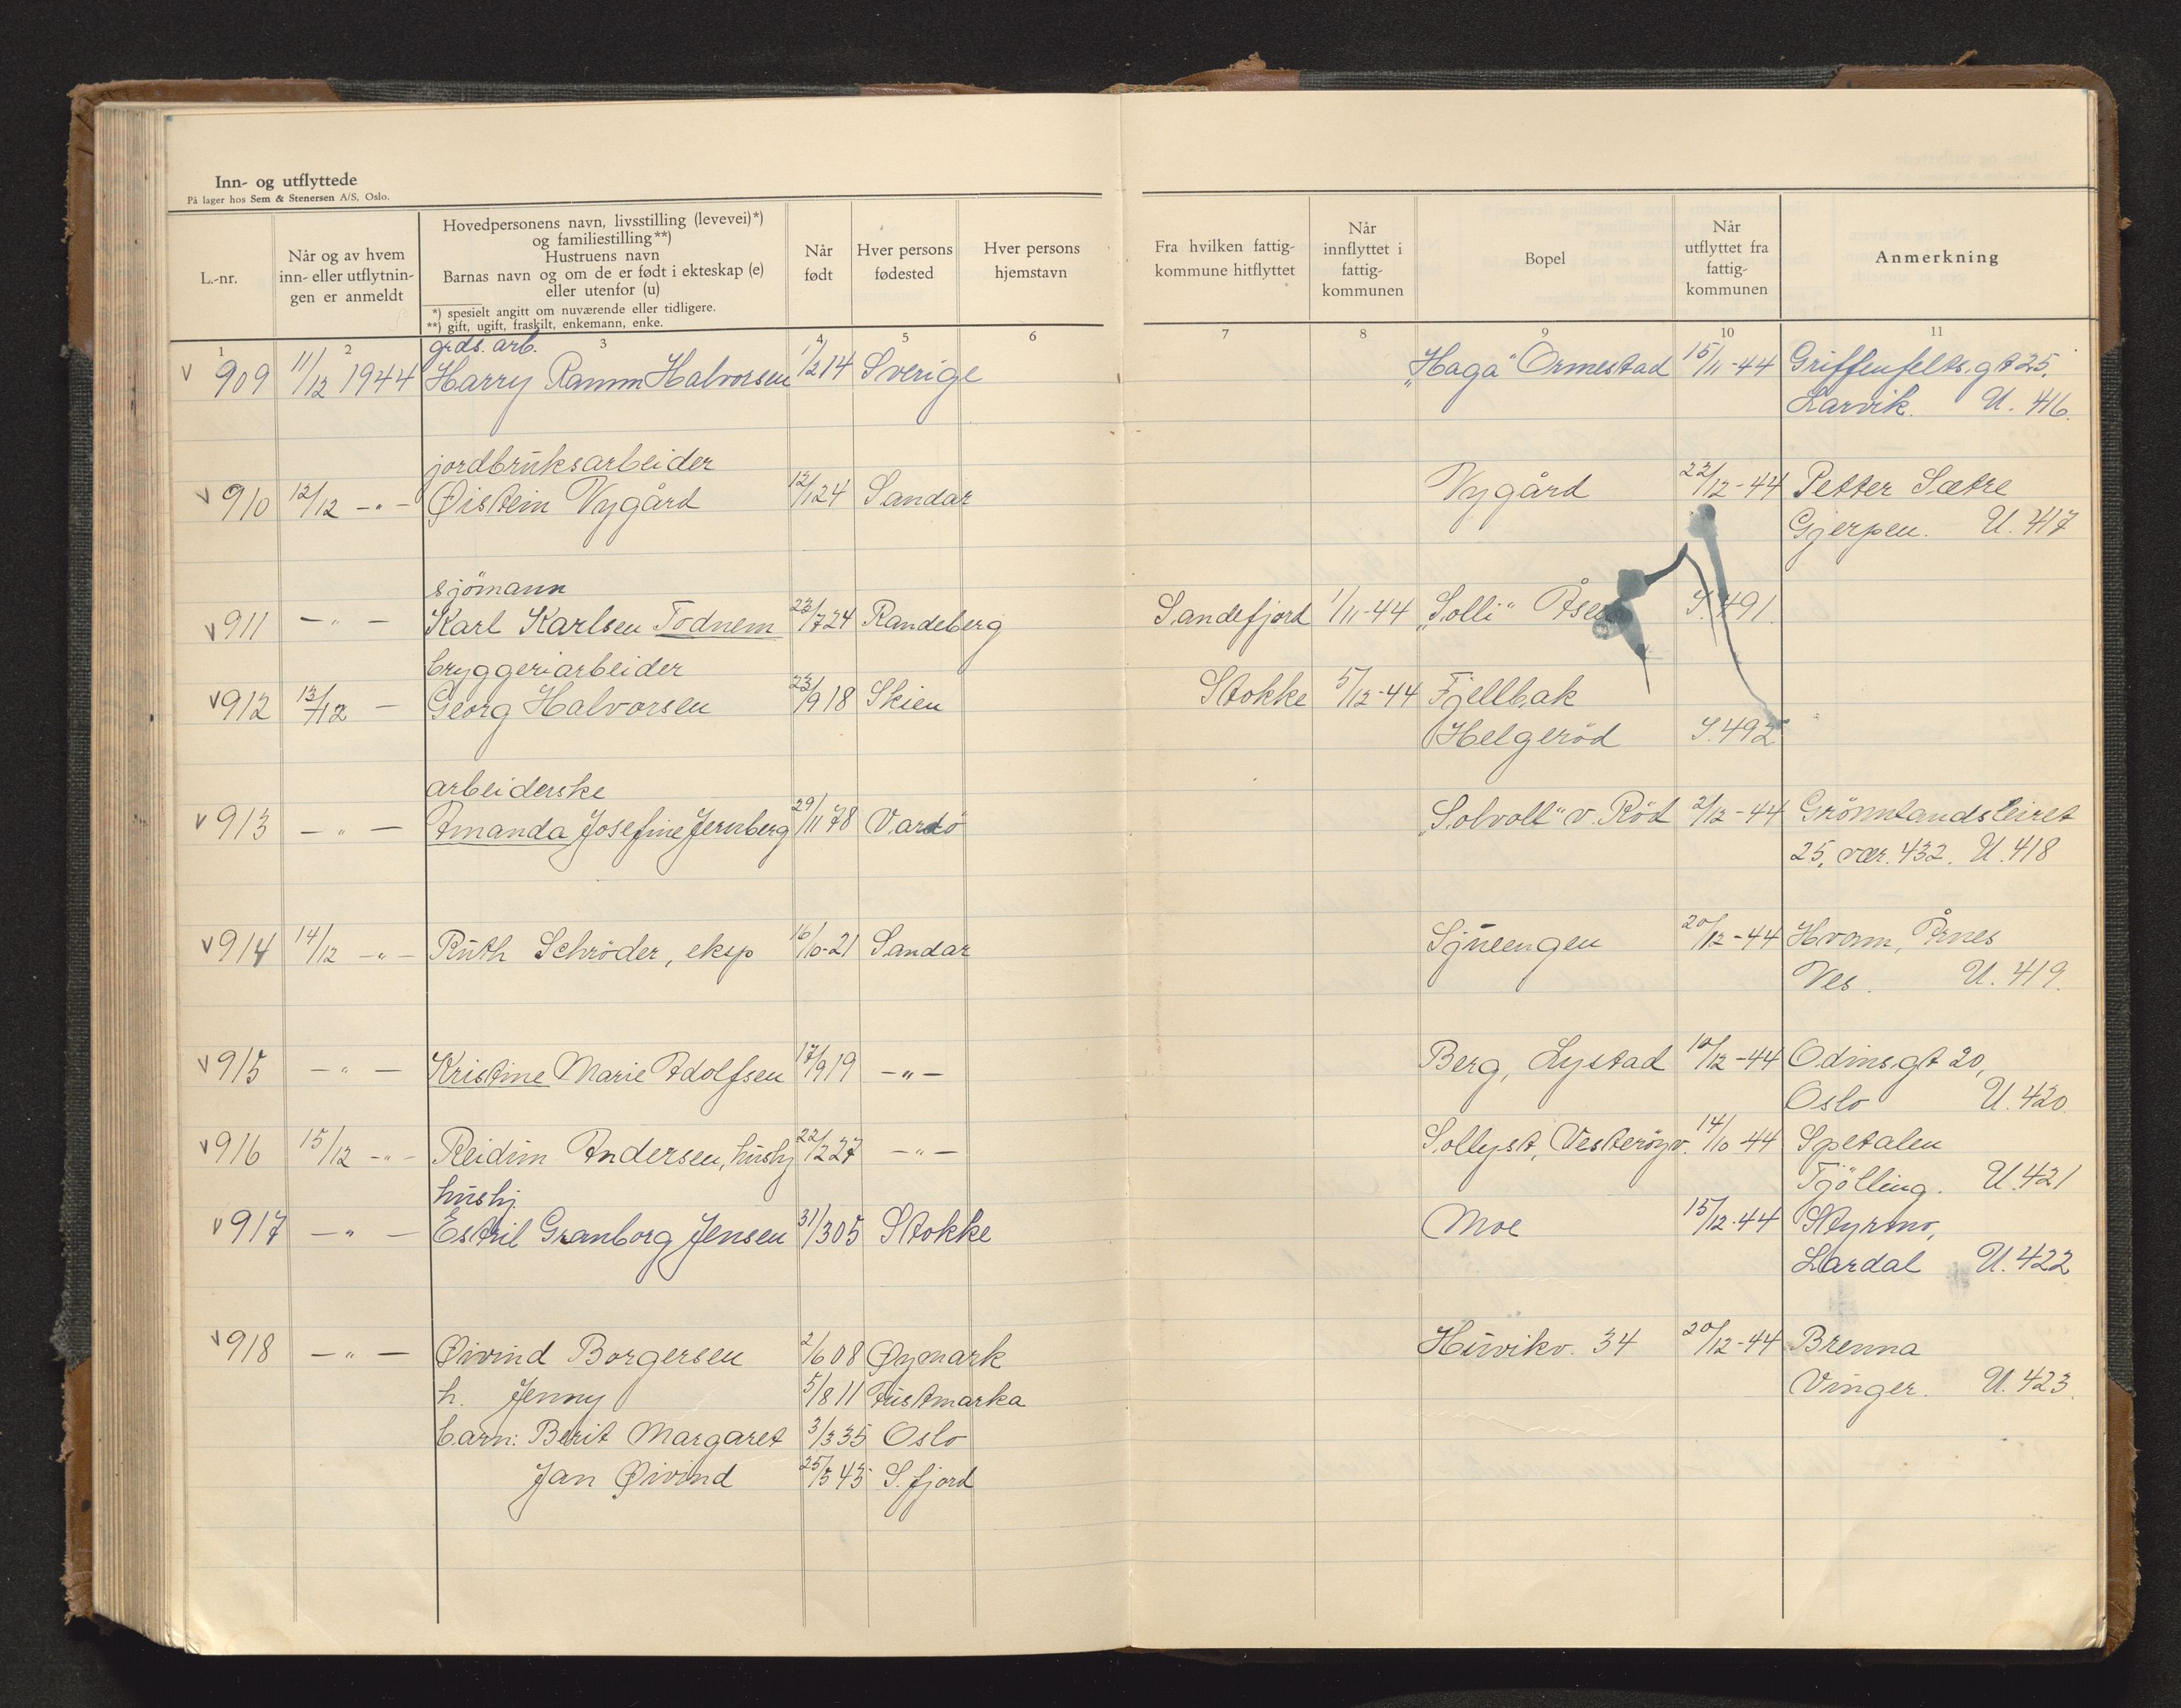 Inn- og utflyttede
På lager hos Sem & Stenersen A/S, Oslo.
L.-nr.
Når og av hvem
inn- eller utflytnin-
gen er anmeldt
Hovedpersonens navn, livsstilling (levevei)*)
og familiestilling**)
Hustruens navn
Barnas navn og om de er født i ekteskap (e)
eller utenfor (u)
*) spesielt angitt om nuværende eller tidligere.
**) gift, ugift, fraskilt, enkemann, enke.
Når
født
Hver persons
fødested
Hver persons
hjemstavn
Fra hvilken fattig-
kommune hitflyttet
Når
innflyttet i
fattig-
kommunen
Bopel
Når
utflyttet fra
fattig-
kommunen
Anmerkning
1 2 3 4 5 6 7 8 9 10 11
grds. arb.
v 909 11/12 1944 Harry Ramm Halvorsen 1/2 14 Sverige „Haga" Ormestad 15/11-44 Griffenfelts.gt 25,
Larvik. U. 416.
jordbruksarbeider
v 910 12/12 -„- Øistein Vygård 12/1 24 Sandar Vygård 22/12-44 Petter Sætre
Gjerpen. U. 417
sjömann
v 911 -„- Karl Karlsen Todnem 23/7 24 Randeberg Sandefjord 1/11-44 „Solli" S. 491.
bryggeriarbeider
v 912 13/12 - Georg Halvorsen 23/9 18 Skien Stokke 5/12-44 Fjellbak
Helgeröd S. 492
arbeiderske
v 913 -„- Amanda Josefine Jernberg 29/11 78 Vardö „Solvoll" v. Röd 2/12-44 Grönnlandsleiret
25, vær. 432. U. 418
v 914 14/12 -„- Ruth Schröder, eksp 16/10-21 Sandar 20/12-44 Hvam, Årnes
Ves. U. 419.
v 915 -„- Kristine Marie Adolfsen 17/9 19 -„- Berg, Lystad 10/12-44 Odinsgt 20,
Oslo U. 420.
v 916 15/12 -„- Reidun Andersen, hushj 22/2 27 -„- Sollyst, Vesteröyv. 14/10-44 Spetalen
Tjölling. U. 421
hushj
v 917 -„- Estril Granborg Jensen 31/3 05 Stokke Moe 15/12-44 Styrmo,
Lardal U. 422
v 918 -„- Øivind Borgersen 2/6 08 Øymark Huvikv. 34 20/12-44 Brenna
h. Jenny 5/8 11 Austmarka Vinger. U. 423.
barn: Berit Margaret 3/3 35 Oslo
Jan Øivind 25/5 43 S.fjord